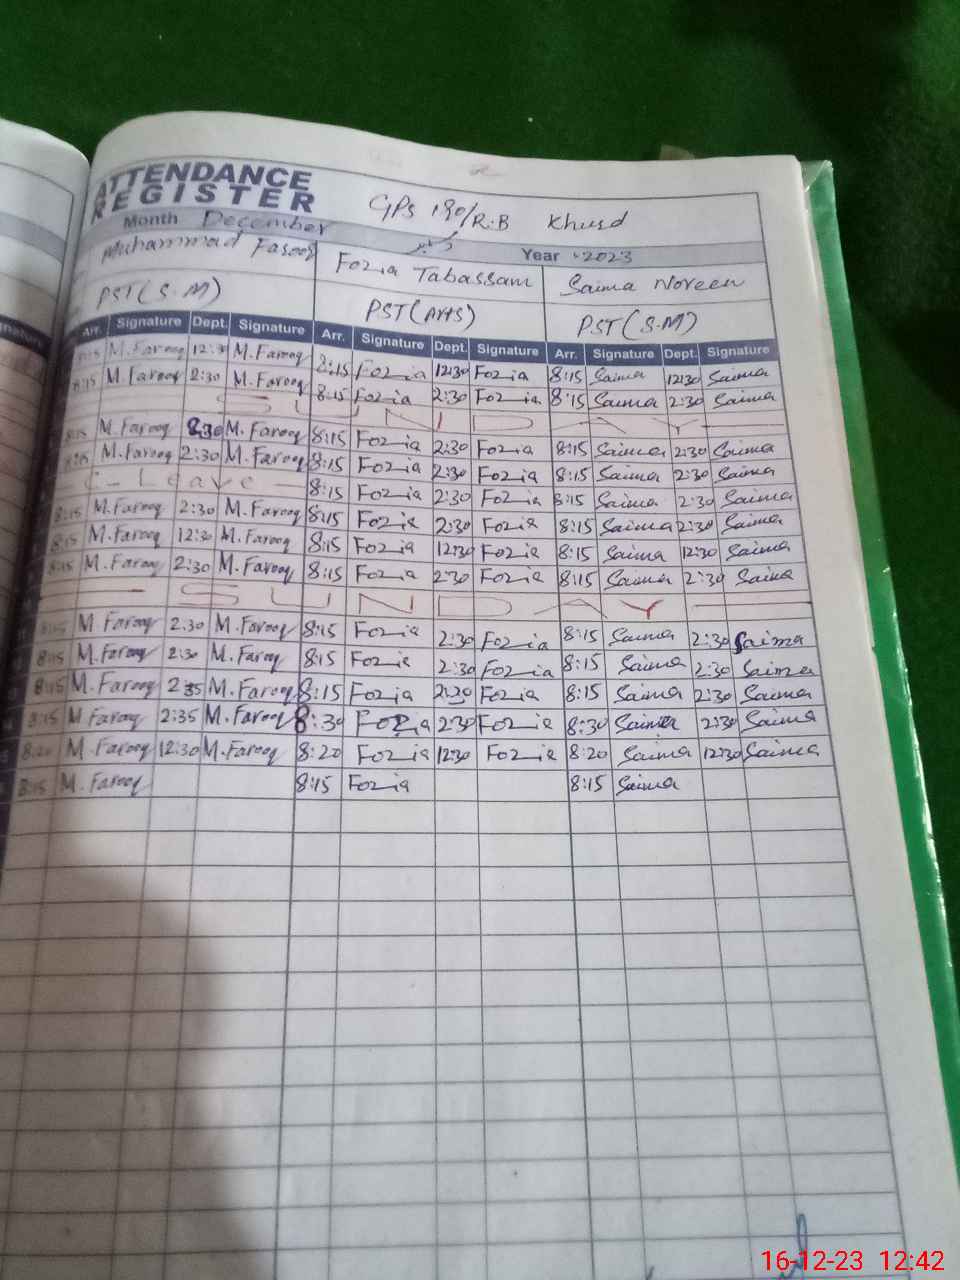 ATTENDANCE
REGISTER
GPS 190/R.B Khurd
Month December دسمبر Year 2023
Muhammad Farooq Fozia Tabassam Saima Noreen
PST(S.M) PST(Arts) PST(S.M)
Arr. Signature Dept. Signature Arr. Signature Dept. Signature Arr. Signature Dept. Signature
8:15 M.Farooq 12:30 M.Farooq 8:15 Fozia 12:30 Fozia 8:15 Saima 12:30 Saima
8:15 M.Farooq 2:30 M.Farooq 8:15 Fozia 2:30 Fozia 8:15 Saima 2:30 Saima
SUNDAY
8:15 M.Farooq 2:30 M.Farooq 8:15 Fozia 2:30 Fozia 8:15 Saima 2:30 Saima
8:15 M.Farooq 2:30 M.Farooq 8:15 Fozia 2:30 Fozia 8:15 Saima 2:30 Saima
C-Leave 8:15 Fozia 2:30 Fozia 8:15 Saima 2:30 Saima
8:15 M.Farooq 2:30 M.Farooq 8:15 Fozia 2:30 Fozia 8:15 Saima 2:30 Saima
8:15 M.Farooq 12:30 M.Farooq 8:15 Fozia 12:30 Fozia 8:15 Saima 12:30 Saima
8:15 M.Farooq 2:30 M.Farooq 8:15 Fozia 2:30 Fozia 8:15 Saima 2:30 Saima
SUNDAY
8:15 M.Farooq 2:30 M.Farooq 8:15 Fozia 2:30 Fozia 8:15 Saima 2:30 Saima
8:15 M.Farooq 2:30 M.Farooq 8:15 Fozia 2:30 Fozia 8:15 Saima 2:30 Saima
8:15 M.Farooq 2:35 M.Farooq 8:15 Fozia 2:30 Fozia 8:15 Saima 2:30 Saima
8:15 M.Farooq 2:35 M.Farooq 8:30 Fozia 2:30 Fozia 8:30 Saima 2:30 Saima
8:20 M.Farooq 12:30 M.Farooq 8:20 Fozia 12:30 Fozia 8:20 Saima 12:30 Saima
8:15 M.Farooq 8:15 Fozia 8:15 Saima
16-12-23 12:42